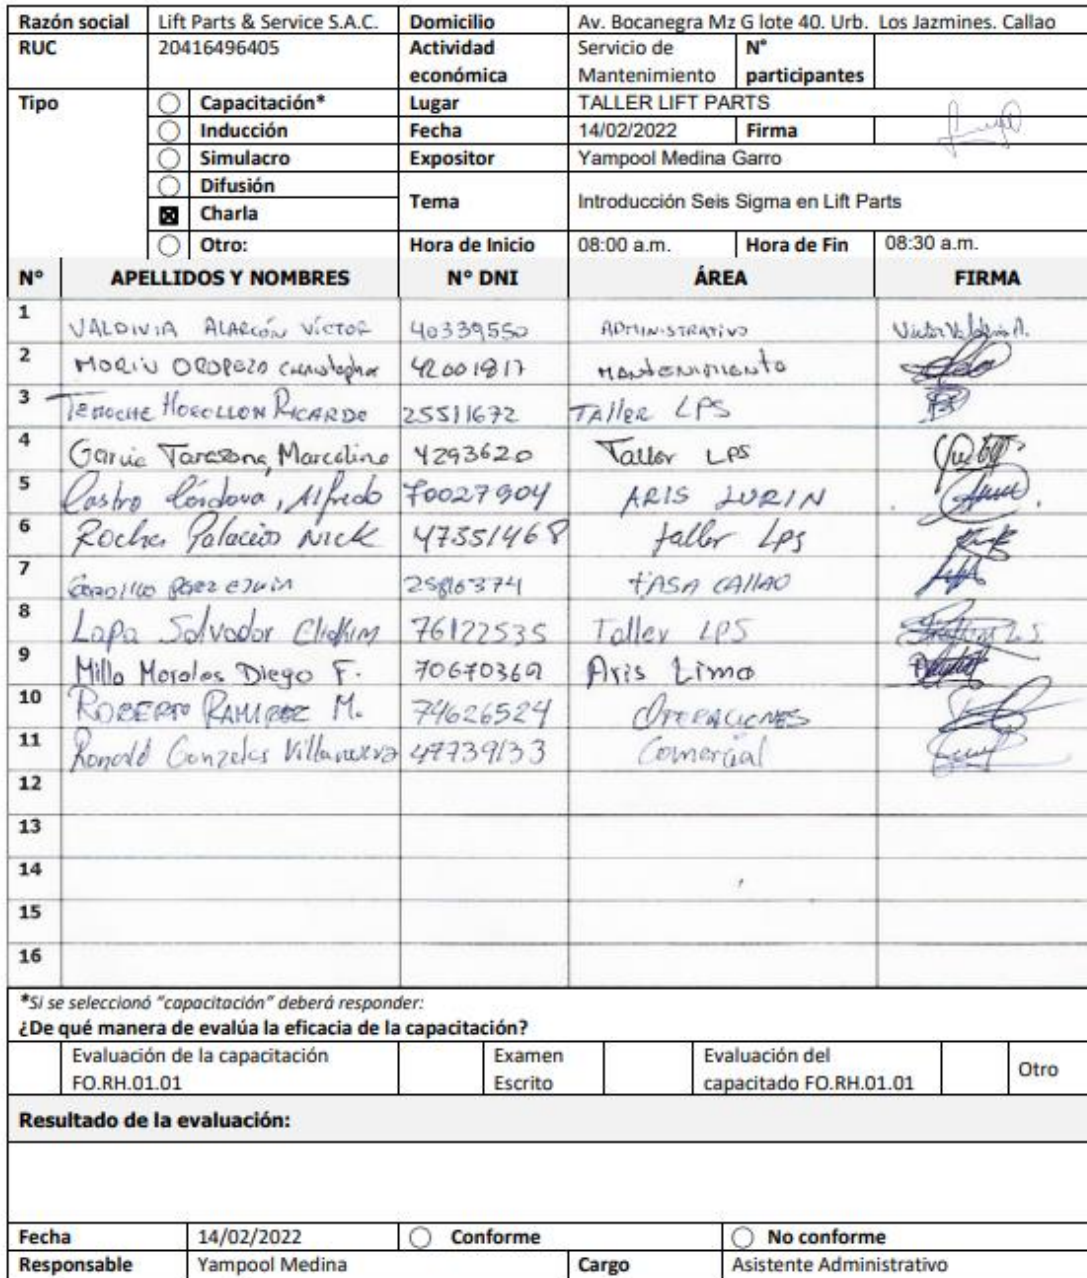 Razón social Lift Parts & Service S.A.C. Domicilio Av. Bocanegra Mz G lote 40. Urb. Los Jazmines. Callao
RUC 20416496405 Actividad económica Servicio de Mantenimiento N° participantes
Tipo Capacitación* Lugar TALLER LIFT PARTS
Inducción Fecha 14/02/2022 Firma
Simulacro Expositor Yampool Medina Garro
Difusión
Charla Tema Introducción Seis Sigma en Lift Parts
Otro: Hora de Inicio 08:00 a.m. Hora de Fin 08:30 a.m.
N° APELLIDOS Y NOMBRES N° DNI ÁREA FIRMA
1 VALDIVIA ALARCÓN VÍCTOR 40339550 ADMINISTRATIVO
2 MORIN OROPEZO 42001817 MANTENIMIENTO
3 TEMOCHE RICARDO 25511672 TAller LPS
4 Garcia Tarazona Marcelino 4293620 Taller LPS
5 Castro Córdova, Alfredo 70027904 ARIS LURIN
6 Rocha Palacio Nick 47351468 taller LPS
7 25816374 TASA CALLAO
8 Lapa Salvador 76122535 Taller LPS
9 Milla Morales Diego F. 70670369 Aris Lima
10 ROBERTO RAMIREZ M. 74626524 OPERACIONES
11 Ronald Gonzales Villanueva 47739133 Comercial
12
13
14
15
16
*Si se seleccionó "capacitación" deberá responder:
¿De qué manera de evalúa la eficacia de la capacitación?
Evaluación de la capacitación FO.RH.01.01 Examen Escrito Evaluación del capacitado FO.RH.01.01 Otro
Resultado de la evaluación:
Fecha 14/02/2022 Conforme No conforme
Responsable Yampool Medina Cargo Asistente Administrativo